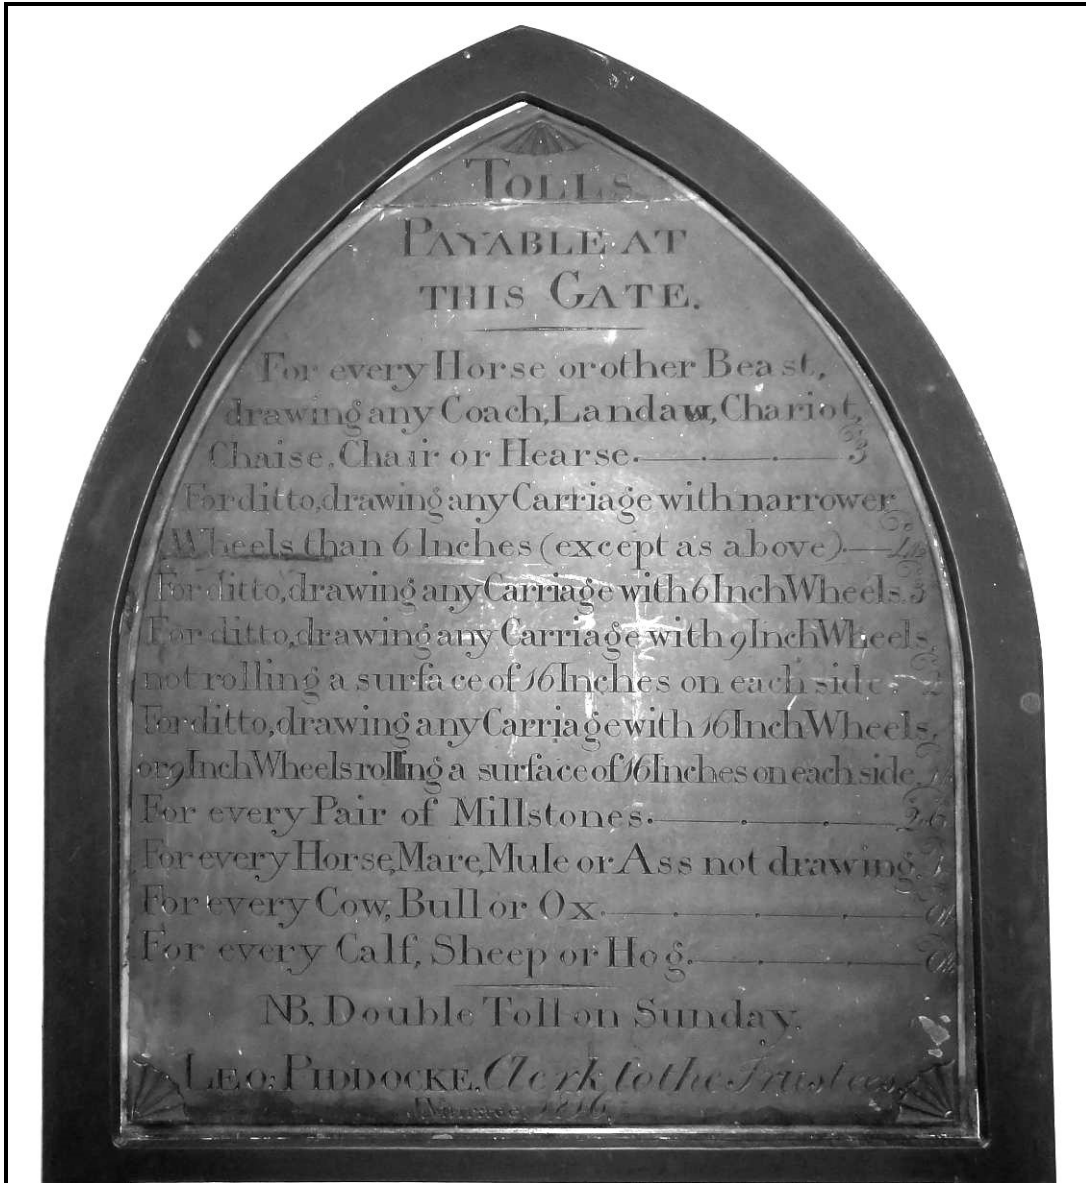 TOLLS
PAYABLE AT
THIS GATE.
For every Horse or other Beast,
drawing any Coach, Landaw, Chariot,
Chaise, Chair or Hearse. 3
For ditto, drawing any Carriage with narrower
Wheels than 6 Inches (except as above).
For ditto, drawing any Carriage with 6 Inch Wheels. 3
For ditto, drawing any Carriage with 9 Inch Wheels
not rolling a surface of 16 Inches on each side. 2
For ditto, drawing any Carriage with 16 Inch Wheels,
or 9 Inch Wheels rolling a surface of 16 Inches on each side.
For every Pair of Millstones. 2.6
For every Horse, Mare, Mule or Ass not drawing.
For every Cow, Bull or Ox.
For every Calf, Sheep or Hog.
NB. Double Toll on Sunday.
LEO: PIDDOCKE. Clerk to the Trustees.
1816